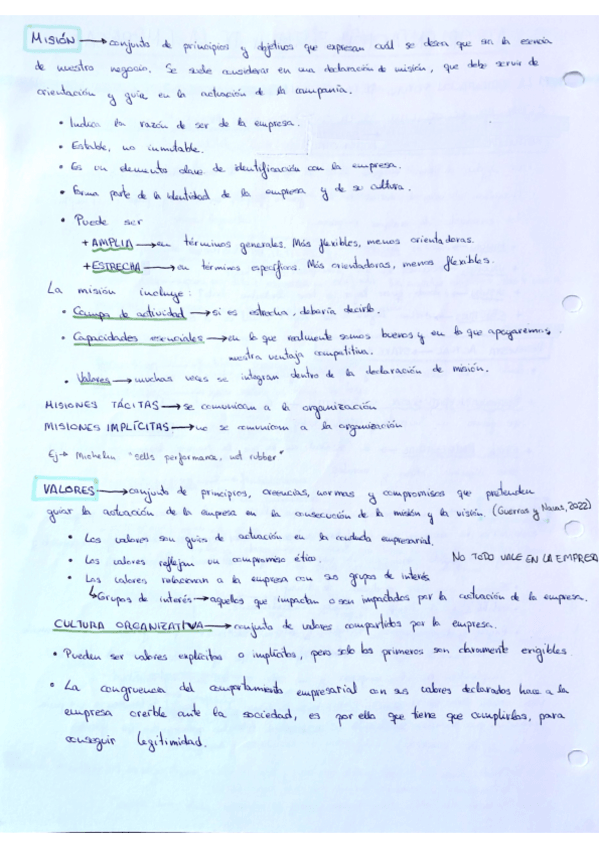 MISIÓN → conjunto de principios y objetivos que expresan cuál se desea que sea la esencia
de nuestro negocio. Se suele considerar en una declaración de misión, que debe servir de
orientación y guía en la actuación de la compañía.
• Indica la razón de ser de la empresa.
• Estable, no inmutable.
• Es un elemento clave de identificación con la empresa.
• Forma parte de la identidad de la empresa y de su cultura.
• Puede ser
+ AMPLIA → en términos generales. Más flexibles, menos orientadoras.
+ ESTRECHA → en términos específicos. Más orientadoras, menos flexibles.
La misión incluye:
• Campo de actividad → si es estrecha, debería decirlo.
• Capacidades esenciales → en lo que realmente somos buenos y en lo que apoyaremos
nuestra ventaja competitiva.
• Valores → muchas veces se integran dentro de la declaración de misión.
MISIONES TÁCITAS → se comunican a la organización
MISIONES IMPLÍCITAS → no se comunican a la organización
Ej → Michelin "sells performance, not rubber"
VALORES → conjunto de principios, creencias, normas y compromisos que pretenden
guiar la actuación de la empresa en la consecución de la misión y la visión. (Guerras y Navas, 2022)
• Los valores son guías de actuación en la conducta empresarial.
• Los valores reflejan un compromiso ético. NO TODO VALE EN LA EMPRESA
• Los valores relacionan a la empresa con sus grupos de interés
↳ Grupos de interés → aquellos que impactan o son impactados por la actuación de la empresa.
CULTURA ORGANIZATIVA → conjunto de valores compartidos por la empresa.
• Pueden ser valores explícitos o implícitos, pero solo los primeros son claramente exigibles.
• La congruencia del comportamiento empresarial con sus valores declarados hace a la
empresa creíble ante la sociedad, es por ello que tiene que cumplirlos, para
conseguir legitimidad.